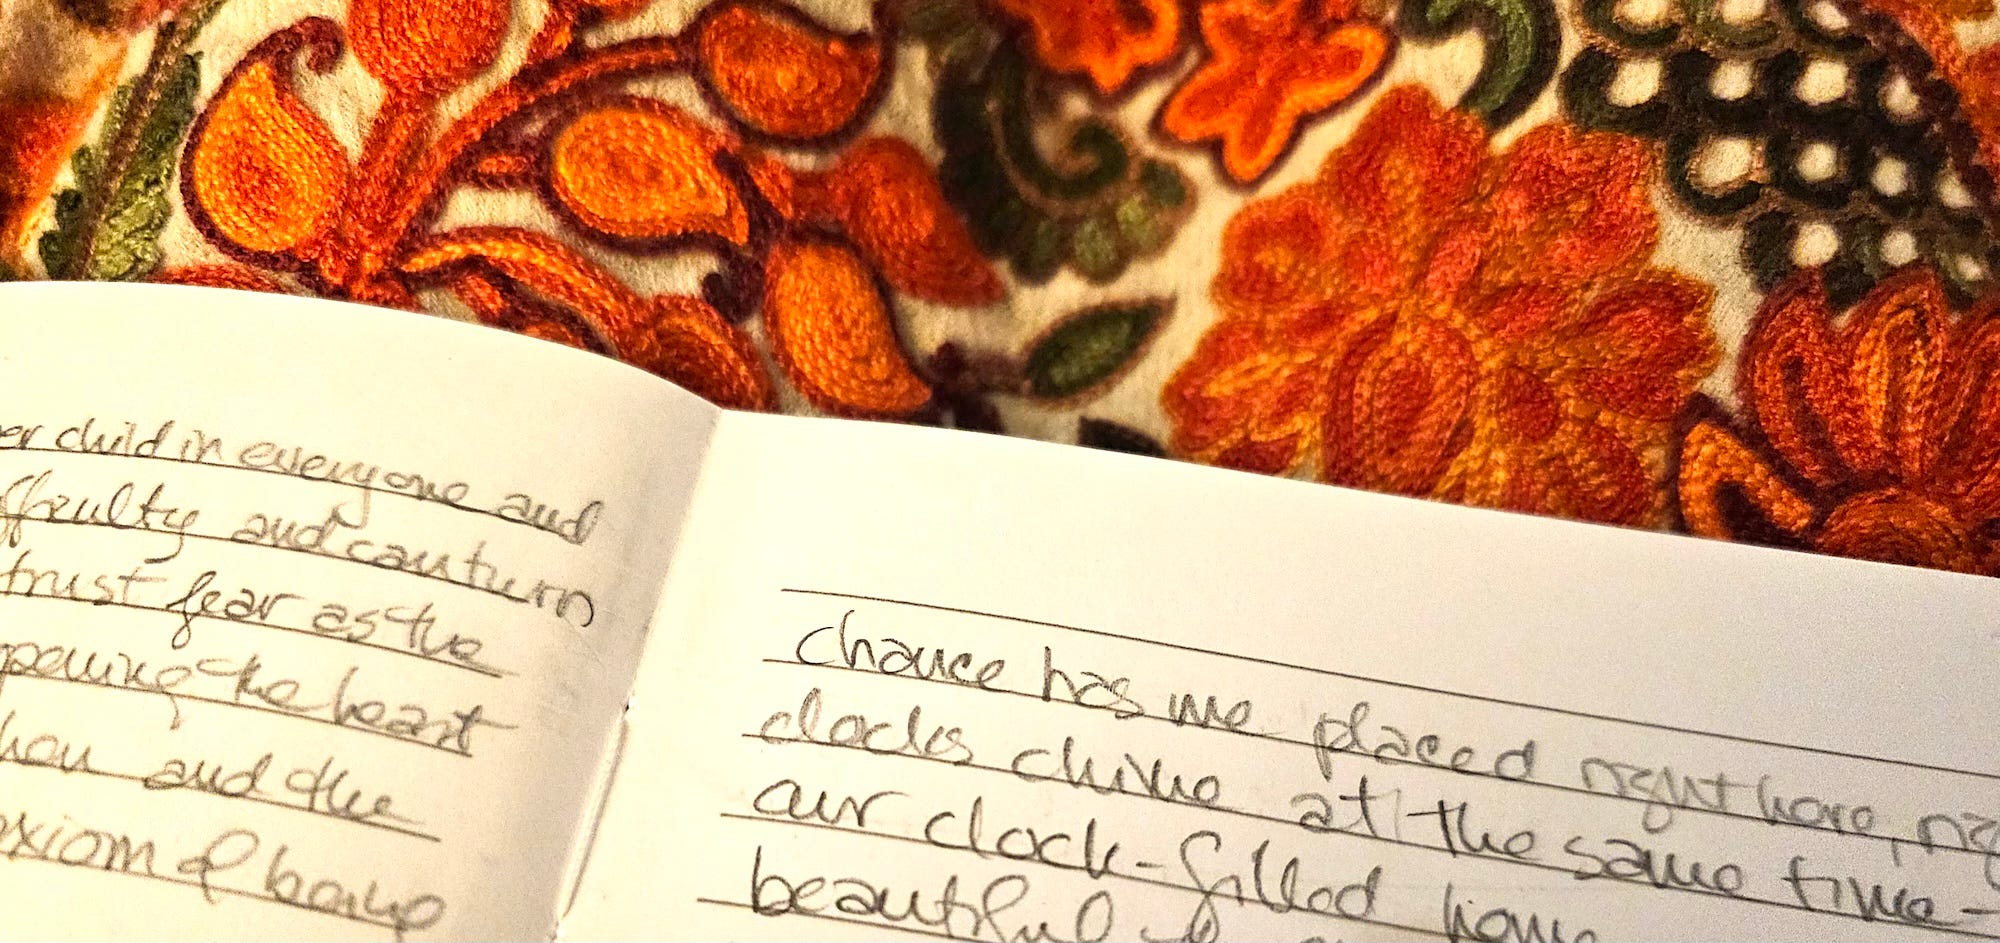 er child in everyone and
faulty and can turn
trust fear as the
opening the heart
and the
axiom of being
chance has me placed right here, rig
clocks chime at the same time-
our clock-filled home
beautiful